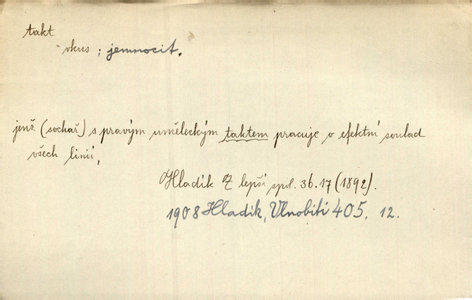 takt
vkus ; jemnocit.
jenž (sochař) s pravým uměleckým taktem pracuje o efektní soulad
všech linií,
Hladík Z lepší spol. 36.17 (1892).
1908 Hladík, Vlnobití 405. 12.